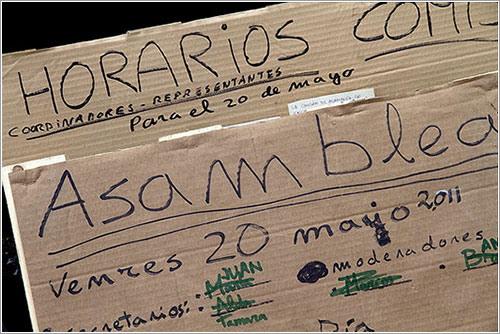 HORARIOS COMIS
COORDINADORES - REPRESENTANTES
Para el 20 de mayo
Asamblea
Venres 20 mayo 2,011
JUAN
moderadores
BAN
secretarios:
Tamara
Día